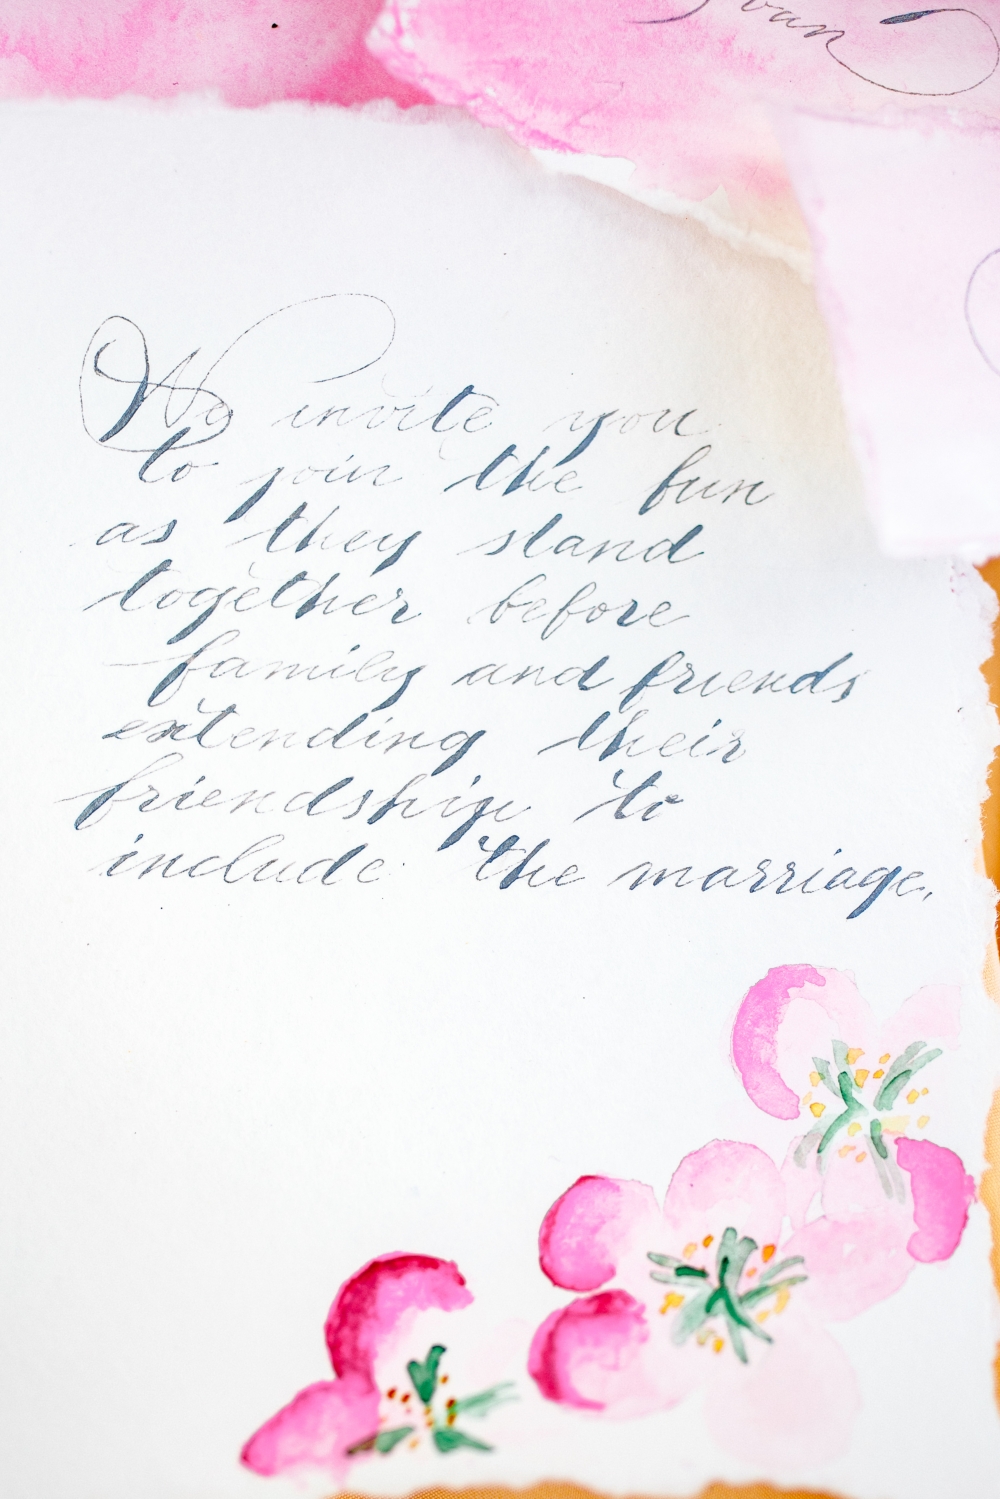 We invite you
to join the fun
as they stand
together before
family and friends
extending their
friendship to
include the marriage.